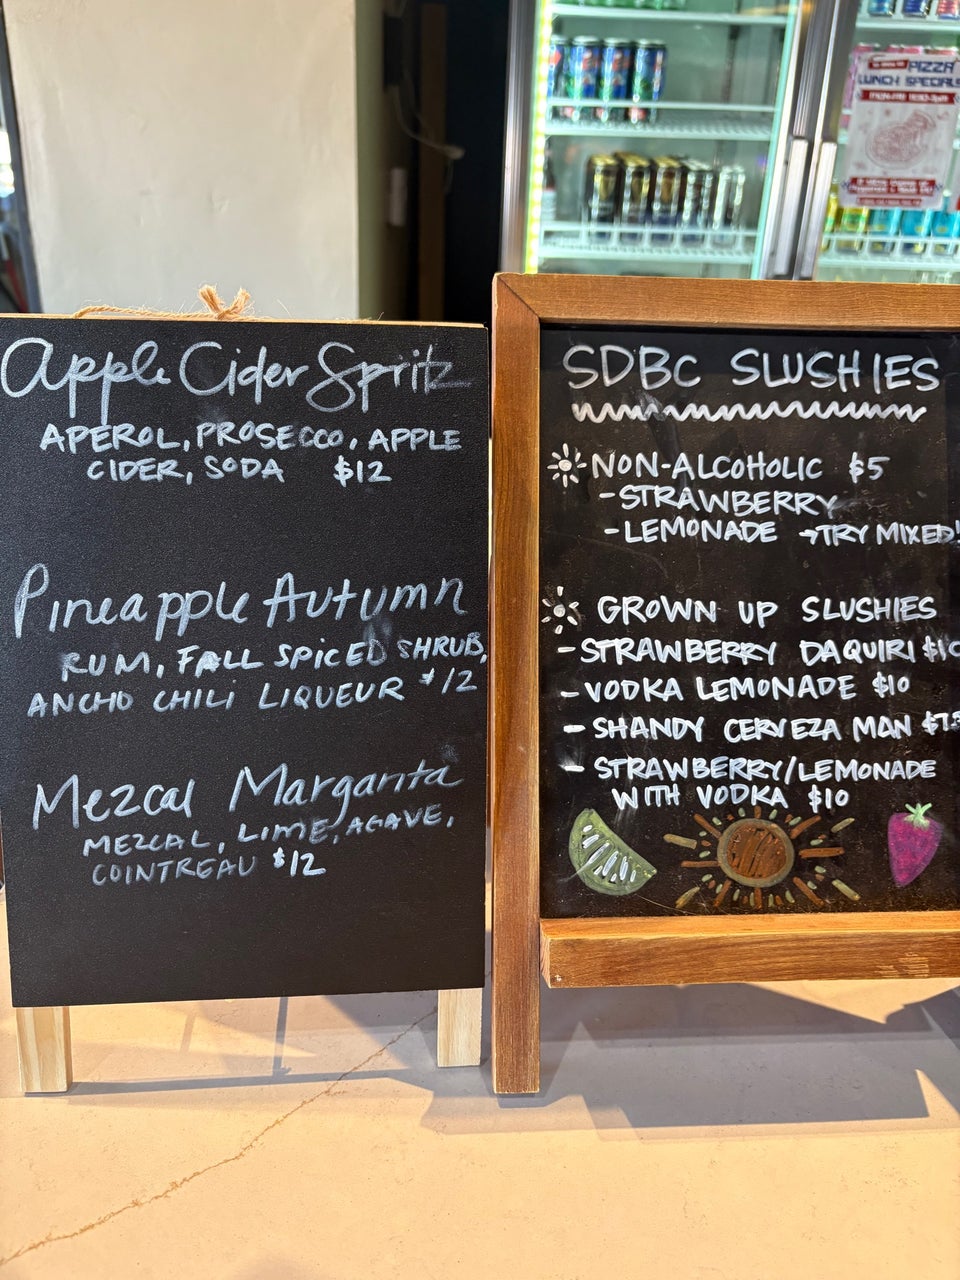 Apple Cider Spritz
APEROL, PROSECCO, APPLE
CIDER, SODA $12
Pineapple Autumn
RUM, FALL SPICED SHRUB,
ANCHO CHILI LIQUEUR $12
Mezcal Margarita
MEZCAL, LIME, AGAVE,
COINTREAU $12
SDBC SLUSHIES
NON-ALCOHOLIC $5
-STRAWBERRY
-LEMONADE →TRY MIXED!
GROWN UP SLUSHIES
-STRAWBERRY DAQUIRI
-VODKA LEMONADE $10
-SHANDY CERVEZA MAN
-STRAWBERRY/LEMONADE
WITH VODKA $10
PIZZA
LUNCH SPECIALS